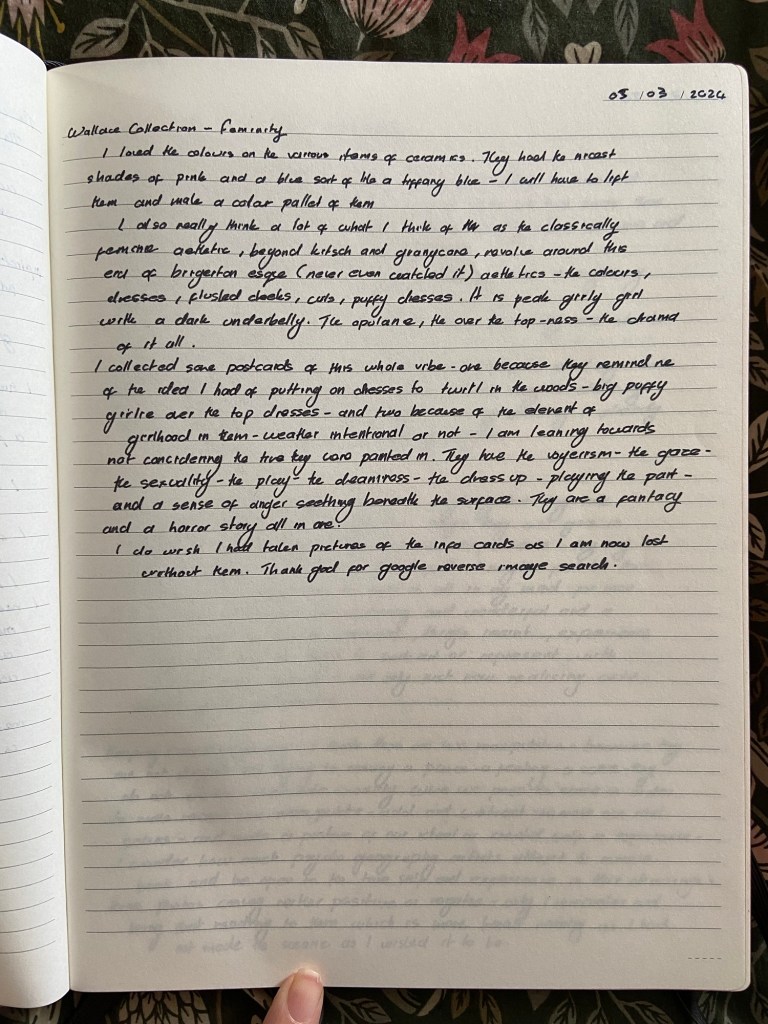 05 / 03 / 2024
Wallace Collection - Feminity
I loved the colours on the various items of ceramics. They had the nicest
shades of pink and a blue sort of like a tiffany blue - I will have to lift
them and make a color pallet of them
I also really think a lot of what I think of as the classically
feminine asthetic, beyond kitsch and granycore, revolve around this
era of brigerton esqe (never even watched it) asthetics - the colours,
dresses, flushed cheeks, curls, puffy dresses. It is peak girly girl
with a dark underbelly. The opulane, the over the top-ness - the drama
of it all.
I collected some postcards of this whole vibe - one because they remind me
of the idea I had of putting on dresses to twirl in the woods - big puffy
girlie over the top dresses - and two because of the element of
girlhood in them - weather intentional or not - I am leaning towards
not concidering the time they were painted in. They have the voyerism - the gaze -
the sexuality - the play - the dreaminess - the dress up - playing the part -
and a sense of anger seething beneath the surface. They are a fantacy
and a horror story all in one.
I do wish I had taken pictures of the info cards as I am now lost
without them. Thank god for google reverse image search.